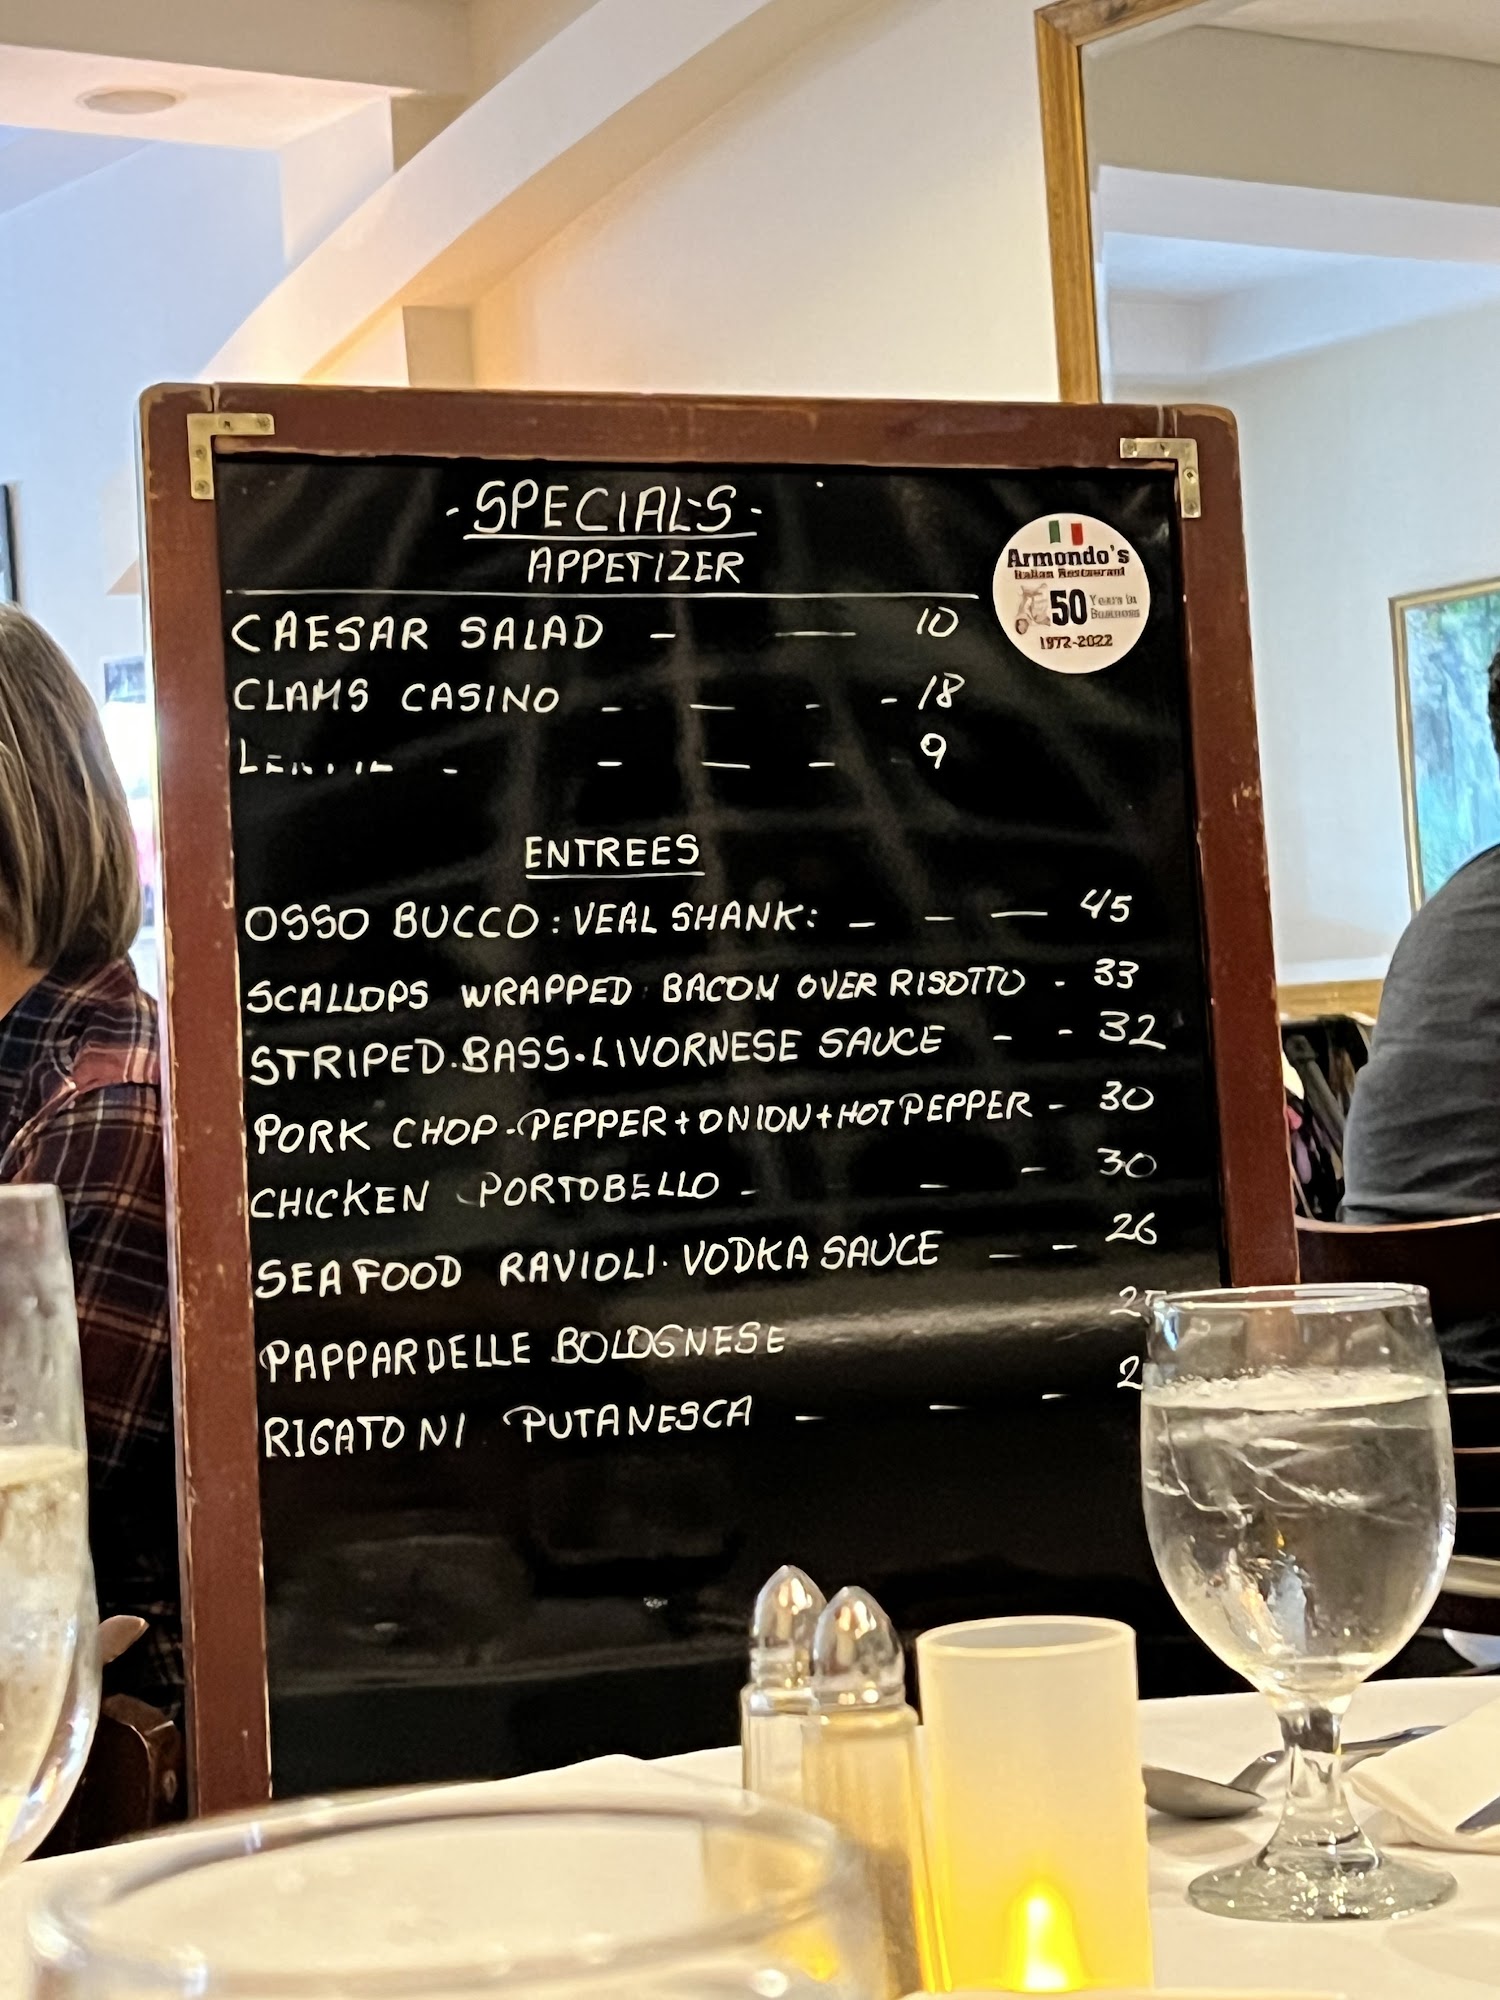 - SPECIALS -
APPETIZER
CAESAR SALAD - — 10
CLAMS CASINO - — - - 18
- - — - 9
Armondo's
Italian Restaurant
50 Years in
Business
1972-2022
ENTREES
OSSO BUCCO : VEAL SHANK: - - — 45
SCALLOPS WRAPPED BACON OVER RISOTTO - 33
STRIPED.BASS.LIVORNESE SAUCE - - 32
PORK CHOP-PEPPER+ONION+HOT PEPPER - 30
CHICKEN PORTOBELLO - - - 30
SEAFOOD RAVIOLI. VODKA SAUCE - - 26
PAPPARDELLE BOLOGNESE
RIGATONI PUTANESCA - - -